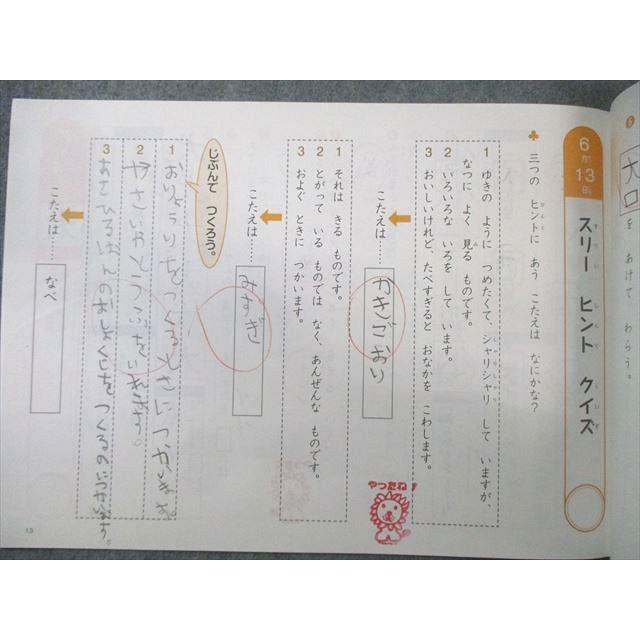 大口
を あけて わらう。
6月13日
スリー ヒント クイズ
三つの ヒントに あう こたえは なにかな?
1 ゆきの ように つめたくて、シャリシャリ して いますが、
なつに よく 見る ものです。
2 いろいろな いろを して います。
3 おいしいけれど、たべすぎると おなかを こわします。
こたえは……
かきごおり
やったね!
1 それは きる ものです。
2 とがって いる ものでは なく、あんぜんな ものです。
3 およぐ ときに つかいます。
こたえは……
みずぎ
じぶんで つくろう。
1 おりょうりをつくるときにつかいます。
2 やさいやとうふをいれます。
3 あさひるばんのおしょくじをつくるのにつかいます
こたえは……
なべ
13